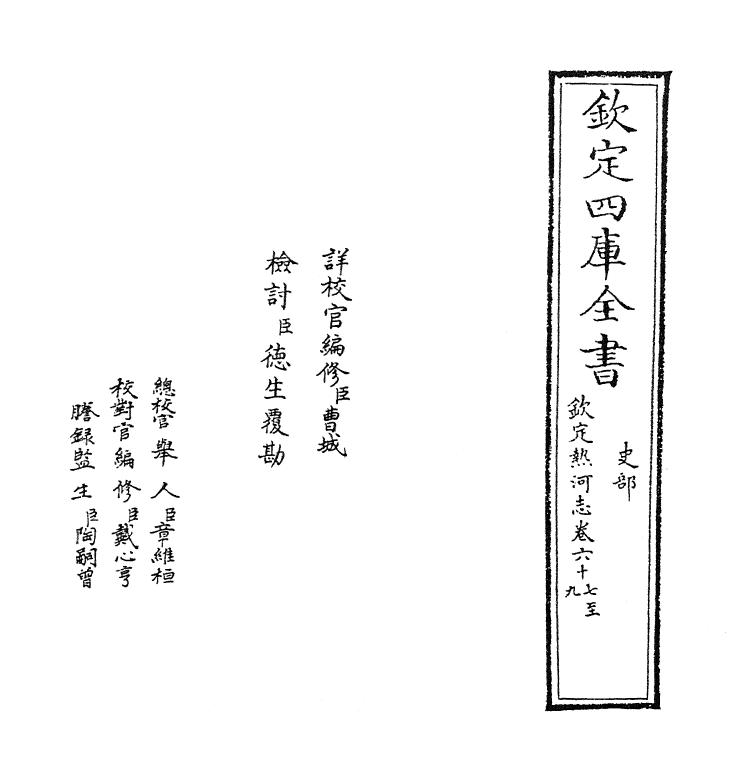 欽定四庫全書
史部
欽定熱河志卷六十七至九
詳校官編修臣曹城
檢討臣德生覆勘
總校官舉人臣章維桓
校對官編修臣戴心亨
謄録監生臣陶嗣曾